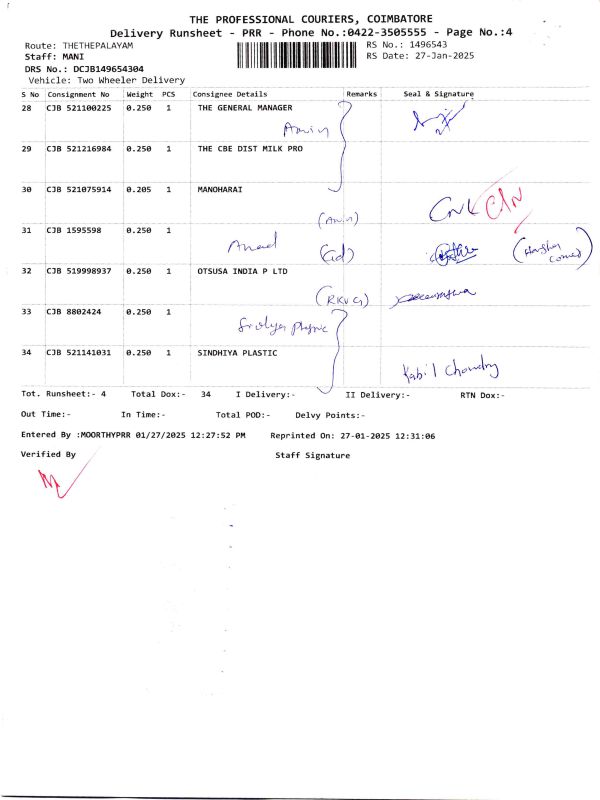 THE PROFESSIONAL COURIERS, COIMBATORE
Delivery Runsheet - PRR - Phone No.:0422-3505555 - Page No.:4
Route: THETHEPALAYAM RS No.: 1496543
Staff: MANI RS Date: 27-Jan-2025
DRS No.: DCJB149654304
Vehicle: Two Wheeler Delivery
S No Consignment No Weight PCS Consignee Details Remarks Seal & Signature
28 CJB 521100225 0.250 1 THE GENERAL MANAGER
29 CJB 521216984 0.250 1 THE CBE DIST MILK PRO
30 CJB 521075914 0.205 1 MANOHARAI
31 CJB 1595598 0.250 1
Anand
32 CJB 519998937 0.250 1 OTSUSA INDIA P LTD
(RKVG)
33 CJB 8802424 0.250 1
34 CJB 521141031 0.250 1 SINDHIYA PLASTIC
Kabil Chowdry
Tot. Runsheet:- 4 Total Dox:- 34 I Delivery:- II Delivery:- RTN Dox:-
Out Time:- In Time:- Total POD:- Delvy Points:-
Entered By :MOORTHYPRR 01/27/2025 12:27:52 PM Reprinted On: 27-01-2025 12:31:06
Verified By Staff Signature